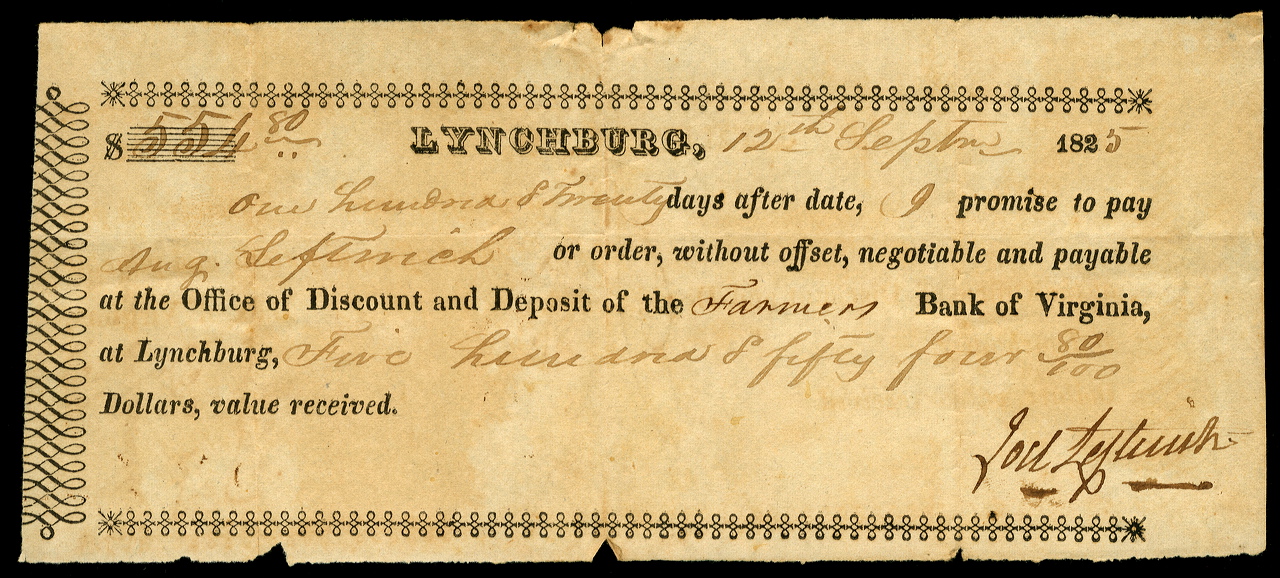 $ 554 80 LYNCHBURG, 12th Septm 1825
One hundred & Twenty days after date, I promise to pay
Aug. Leftwich or order, without offset, negotiable and payable
at the Office of Discount and Deposit of the Farmers Bank of Virginia,
at Lynchburg, Five hundred & fifty four 80/100
Dollars, value received.
Joel Leftwich